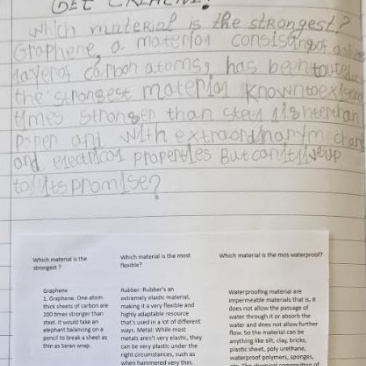 GET CREATIVE!
Which material is the strongest?
Graphene, a material consisting of a
layer of carbon atoms, has been touted
the strongest material known to
times stronger than steel lighter than
paper and with extraordinary mechan
and electrical properties But can it live up
to its promise?
Which material is the
strongest ?
Graphene
1. Graphene. One-atom-
thick sheets of carbon are
200 times stronger than
steel. It would take an
elephant balancing on a
pencil to break a sheet as
thin as Saran wrap.
Which material is the most
flexible?
Rubber: Rubber's an
extremely elastic material,
making it a very flexible and
highly adaptable resource
that's used in a lot of different
ways. Metal: While most
metals aren't very elastic, they
can be very plastic under the
right circumstances, such as
when hammered very thin.
Which material is the mos waterproof?
Waterproofing material are
impermeable materials that is, it
does not allow the passage of
water through it or absorb the
water and does not allow further
flow. So the material can be
anything like silt, clay, bricks,
plastic sheet, poly urethane,
waterproof polymers, sponges,
etc. The chemical composition of